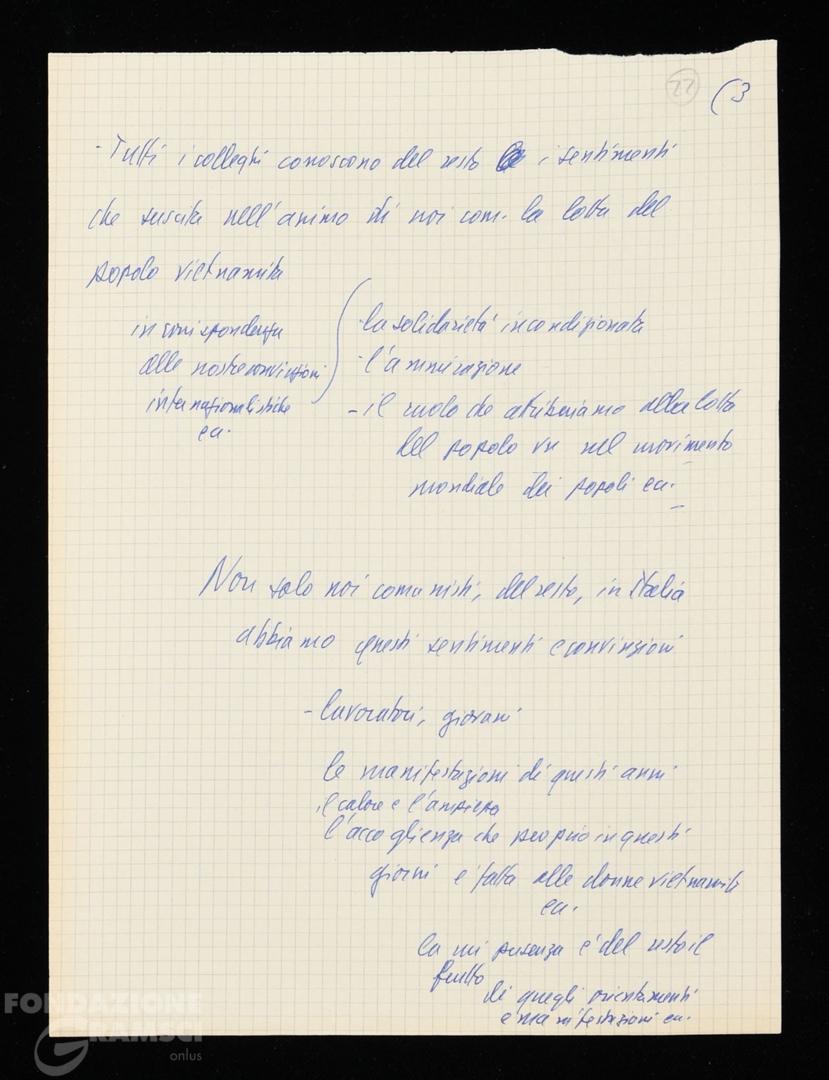 22
(3
- Tutti i colleghi conoscono del resto i sentimenti
che suscita nell'animo di noi com. la lotta del
popolo vietnamita
in corrispondenza
alle nostre convinzioni
internazionalistiche
ecc.
- la solidarietà incondizionata
- l'ammirazione
- il ruolo che attribuiamo alla lotta
del popolo vn nel movimento
mondiale dei popoli ecc.
Non solo noi comunisti, del resto, in Italia
abbiamo questi sentimenti e convinzioni
- lavoratori, giovani
le manifestazioni di questi anni
il calore e l'ampiezza
l'accoglienza che proprio in questi
giorni è fatta alle donne vietnamite
ecc.
la cui presenza è del resto il
frutto
di quegli orientamenti
e manifestazioni ecc.
FONDAZIONE
GRAMSCI
onlus